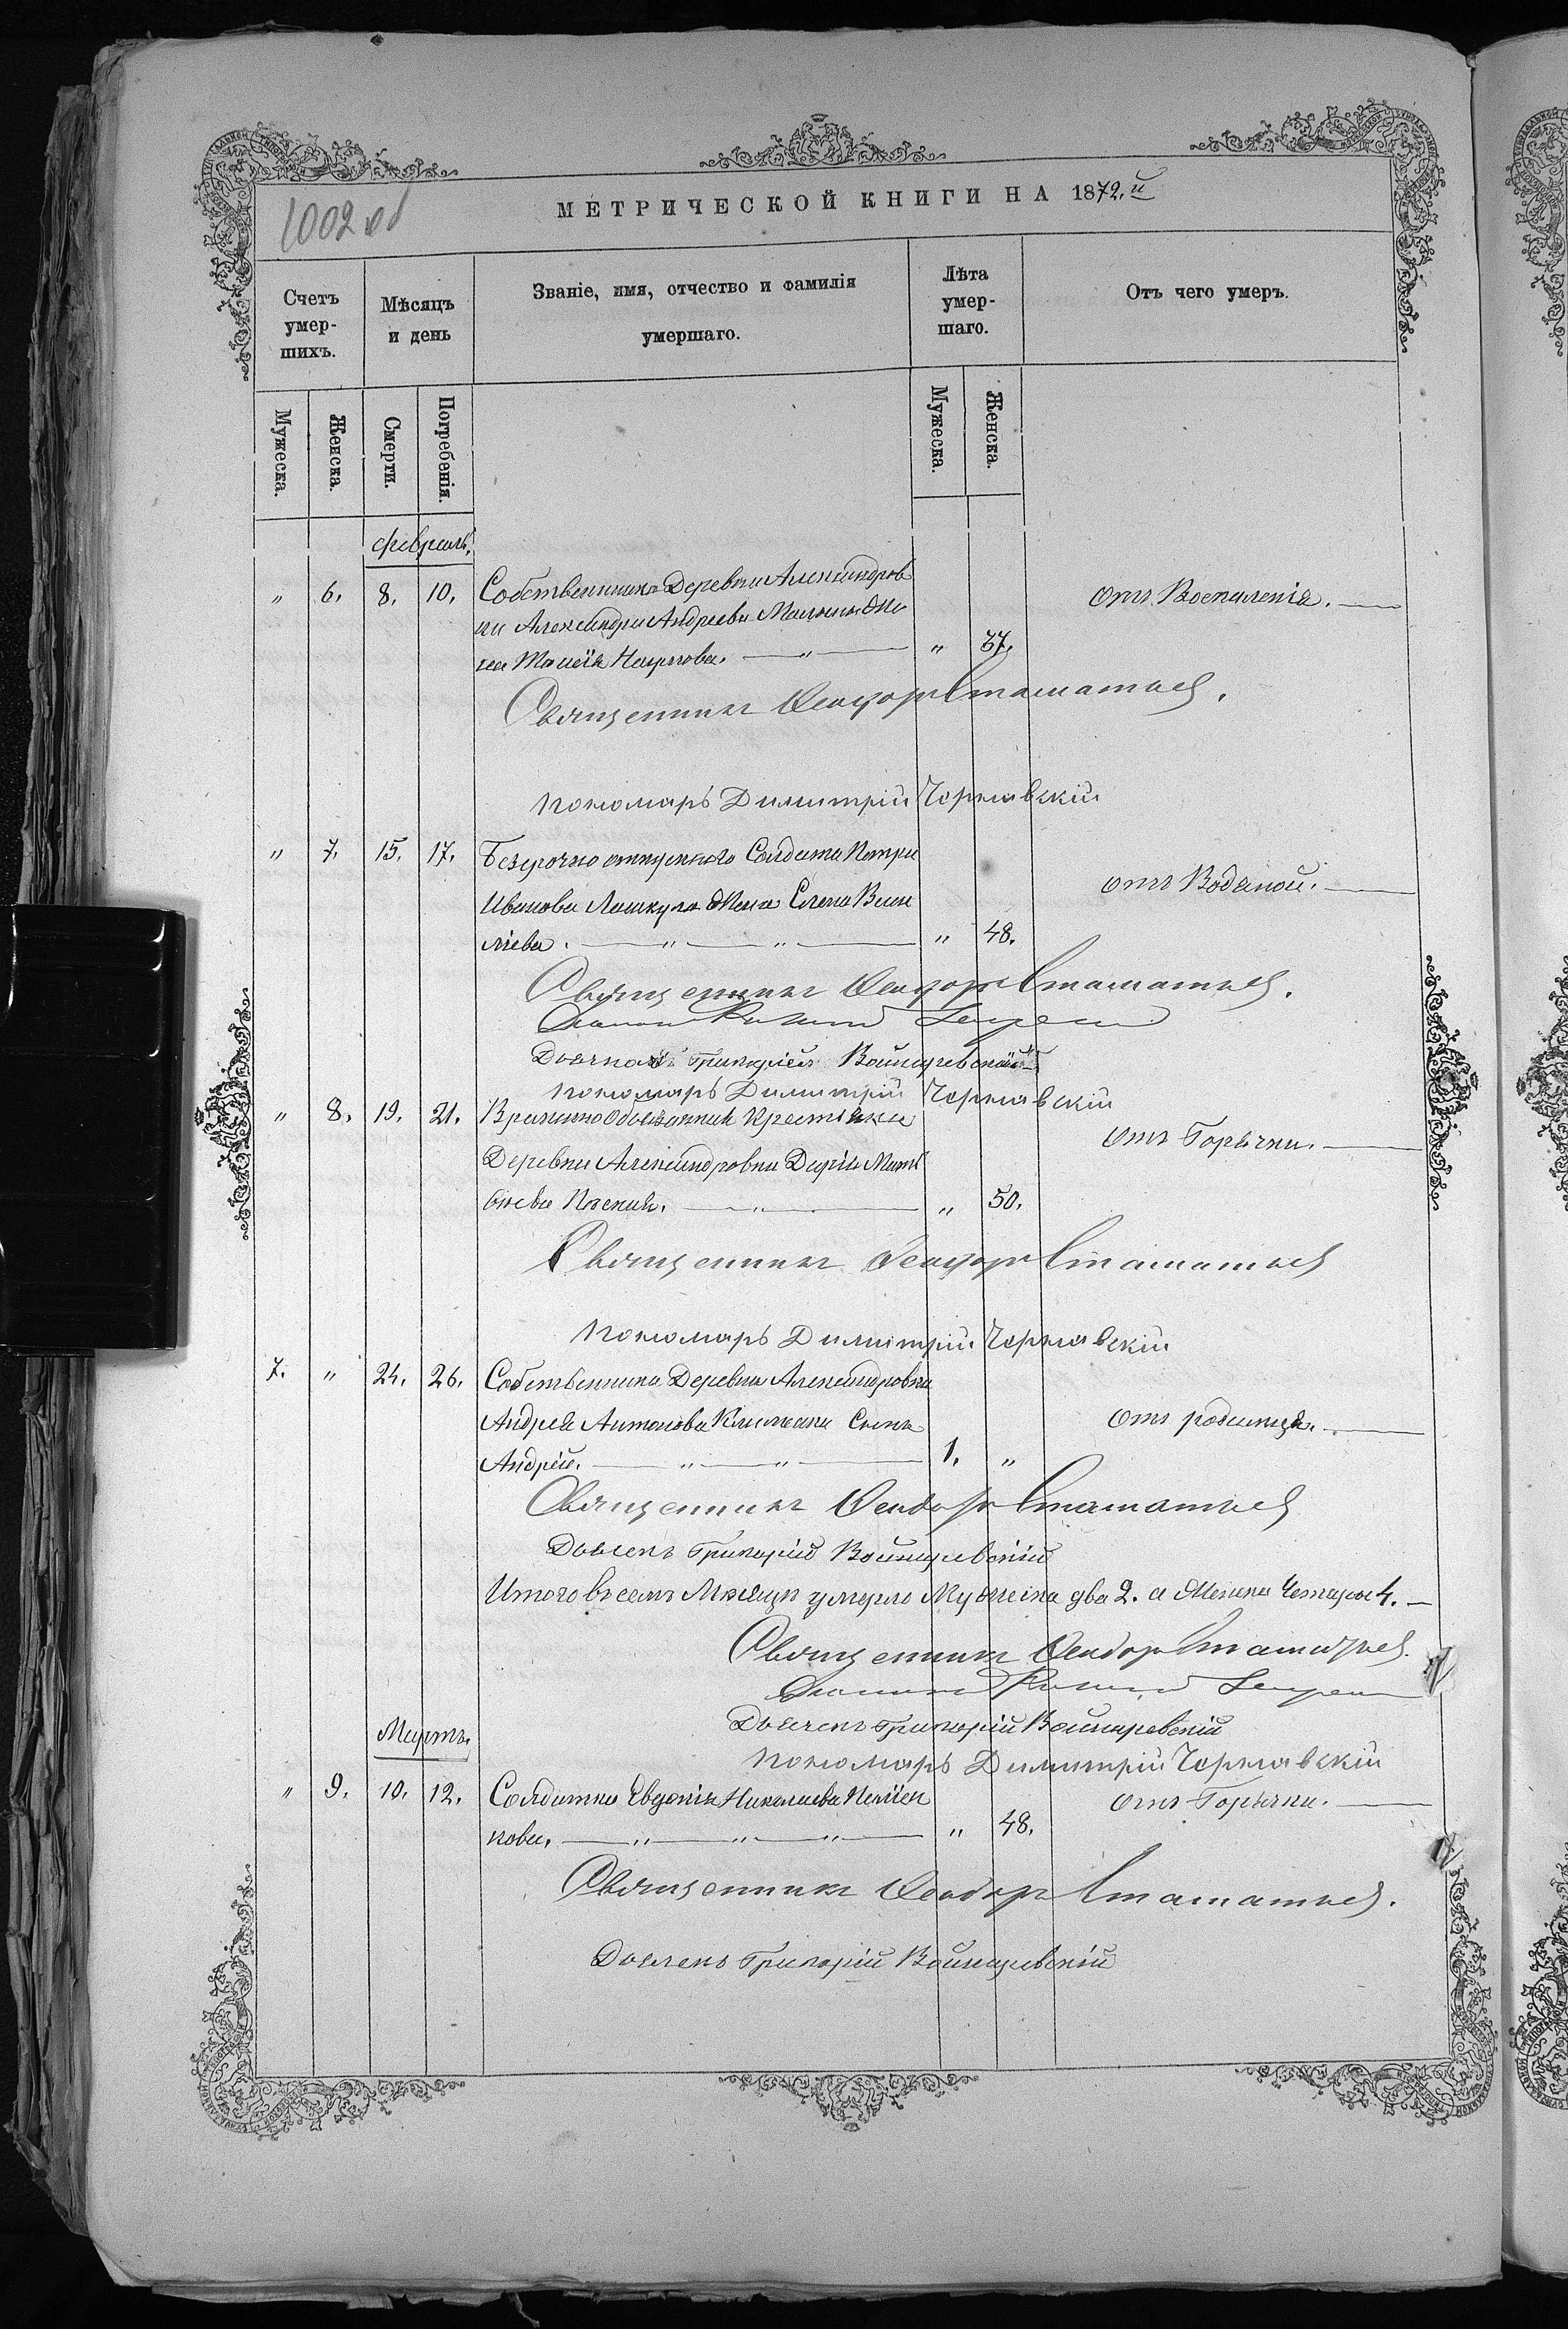 1002 об
МЕТРИЧЕСКОЙ КНИГИ НА 1872.й
Счетъ умер-шихъ.
Мѣсяцъ и день
Званіе, имя, отчество и фамилія умершаго.
Лѣта умер-шаго.
Отъ чего умеръ.
Мужеска.
Женска.
Смерти.
Погребенія.
Мужеска.
Женска.
Февраль.
" 6. 8. 10. Собственника Деревни Александров
ки Александра Андреева жe
на Наумова. " 37. отъ Воспаленія.
Священникъ Ѳеодоръ Стаматьев.
Пономарь Димитрій Чернявскій
" 7. 15. 17. Безсрочно отпускного Солдата Петра
Иванова Лошкула жена Елена Васи
лиева. " 48. отъ Водяной.
Священникъ Ѳеодоръ Стаматьев.
Дьячекъ Григорій Войцеревскій
Пономарь Димитрій Чернявскій
" 8. 19. 21. Временно Обязанная Крестьянка
Деревни Александровки Дарія Мат
веева " 50. отъ Горячки.
Священникъ Ѳеодоръ Стаматьев
Пономарь Димитрій Чернявскій
7. " 24. 26. Собственника Деревни Александровки
Андрея Антонова Климента Сынъ
Андрей. 1. " отъ родимца.
Священникъ Ѳеодоръ Стаматьев
Дьячекъ Григорій Войцеревскій
Итого въ семъ Месяце умерло Мужеска два 2. а Женска Четыре 4.
Священникъ Ѳеодоръ Стаматьев.
Дьячекъ Григорій Войцеревскій
Пономарь Димитрій Чернявскій
Мартъ.
" 9. 10. 12. Солдатка Евдокія Николаева
кова. " 48. отъ Горячки.
Священникъ Ѳеодоръ Стаматьев.
Дьячекъ Григорій Войцеревскій